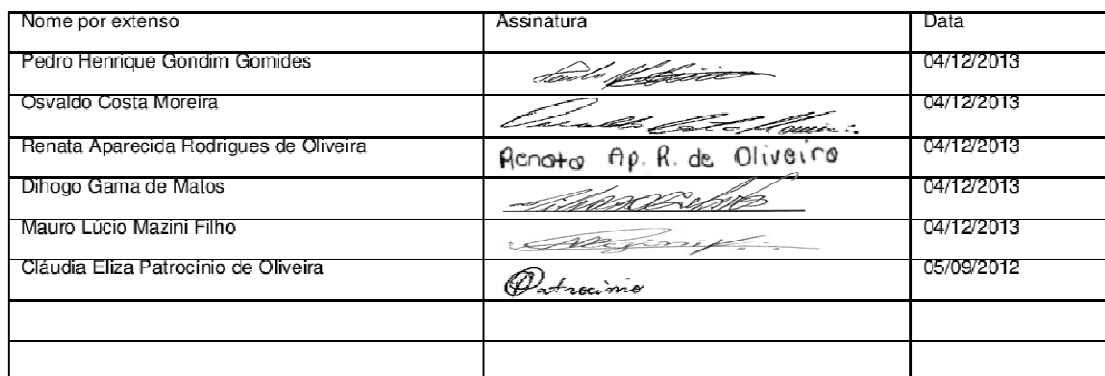 Nome por extenso Assinatura Data
Pedro Henrique Gondim Gomides 04/12/2013
Osvaldo Costa Moreira Osvaldo Costa Moreira 04/12/2013
Renata Aparecida Rodrigues de Oliveira Renata Ap. R. de Oliveira 04/12/2013
Dihogo Gama de Matos 04/12/2013
Mauro Lúcio Mazini Filho 04/12/2013
Cláudia Eliza Patrocínio de Oliveira Patrocínio 05/09/2012